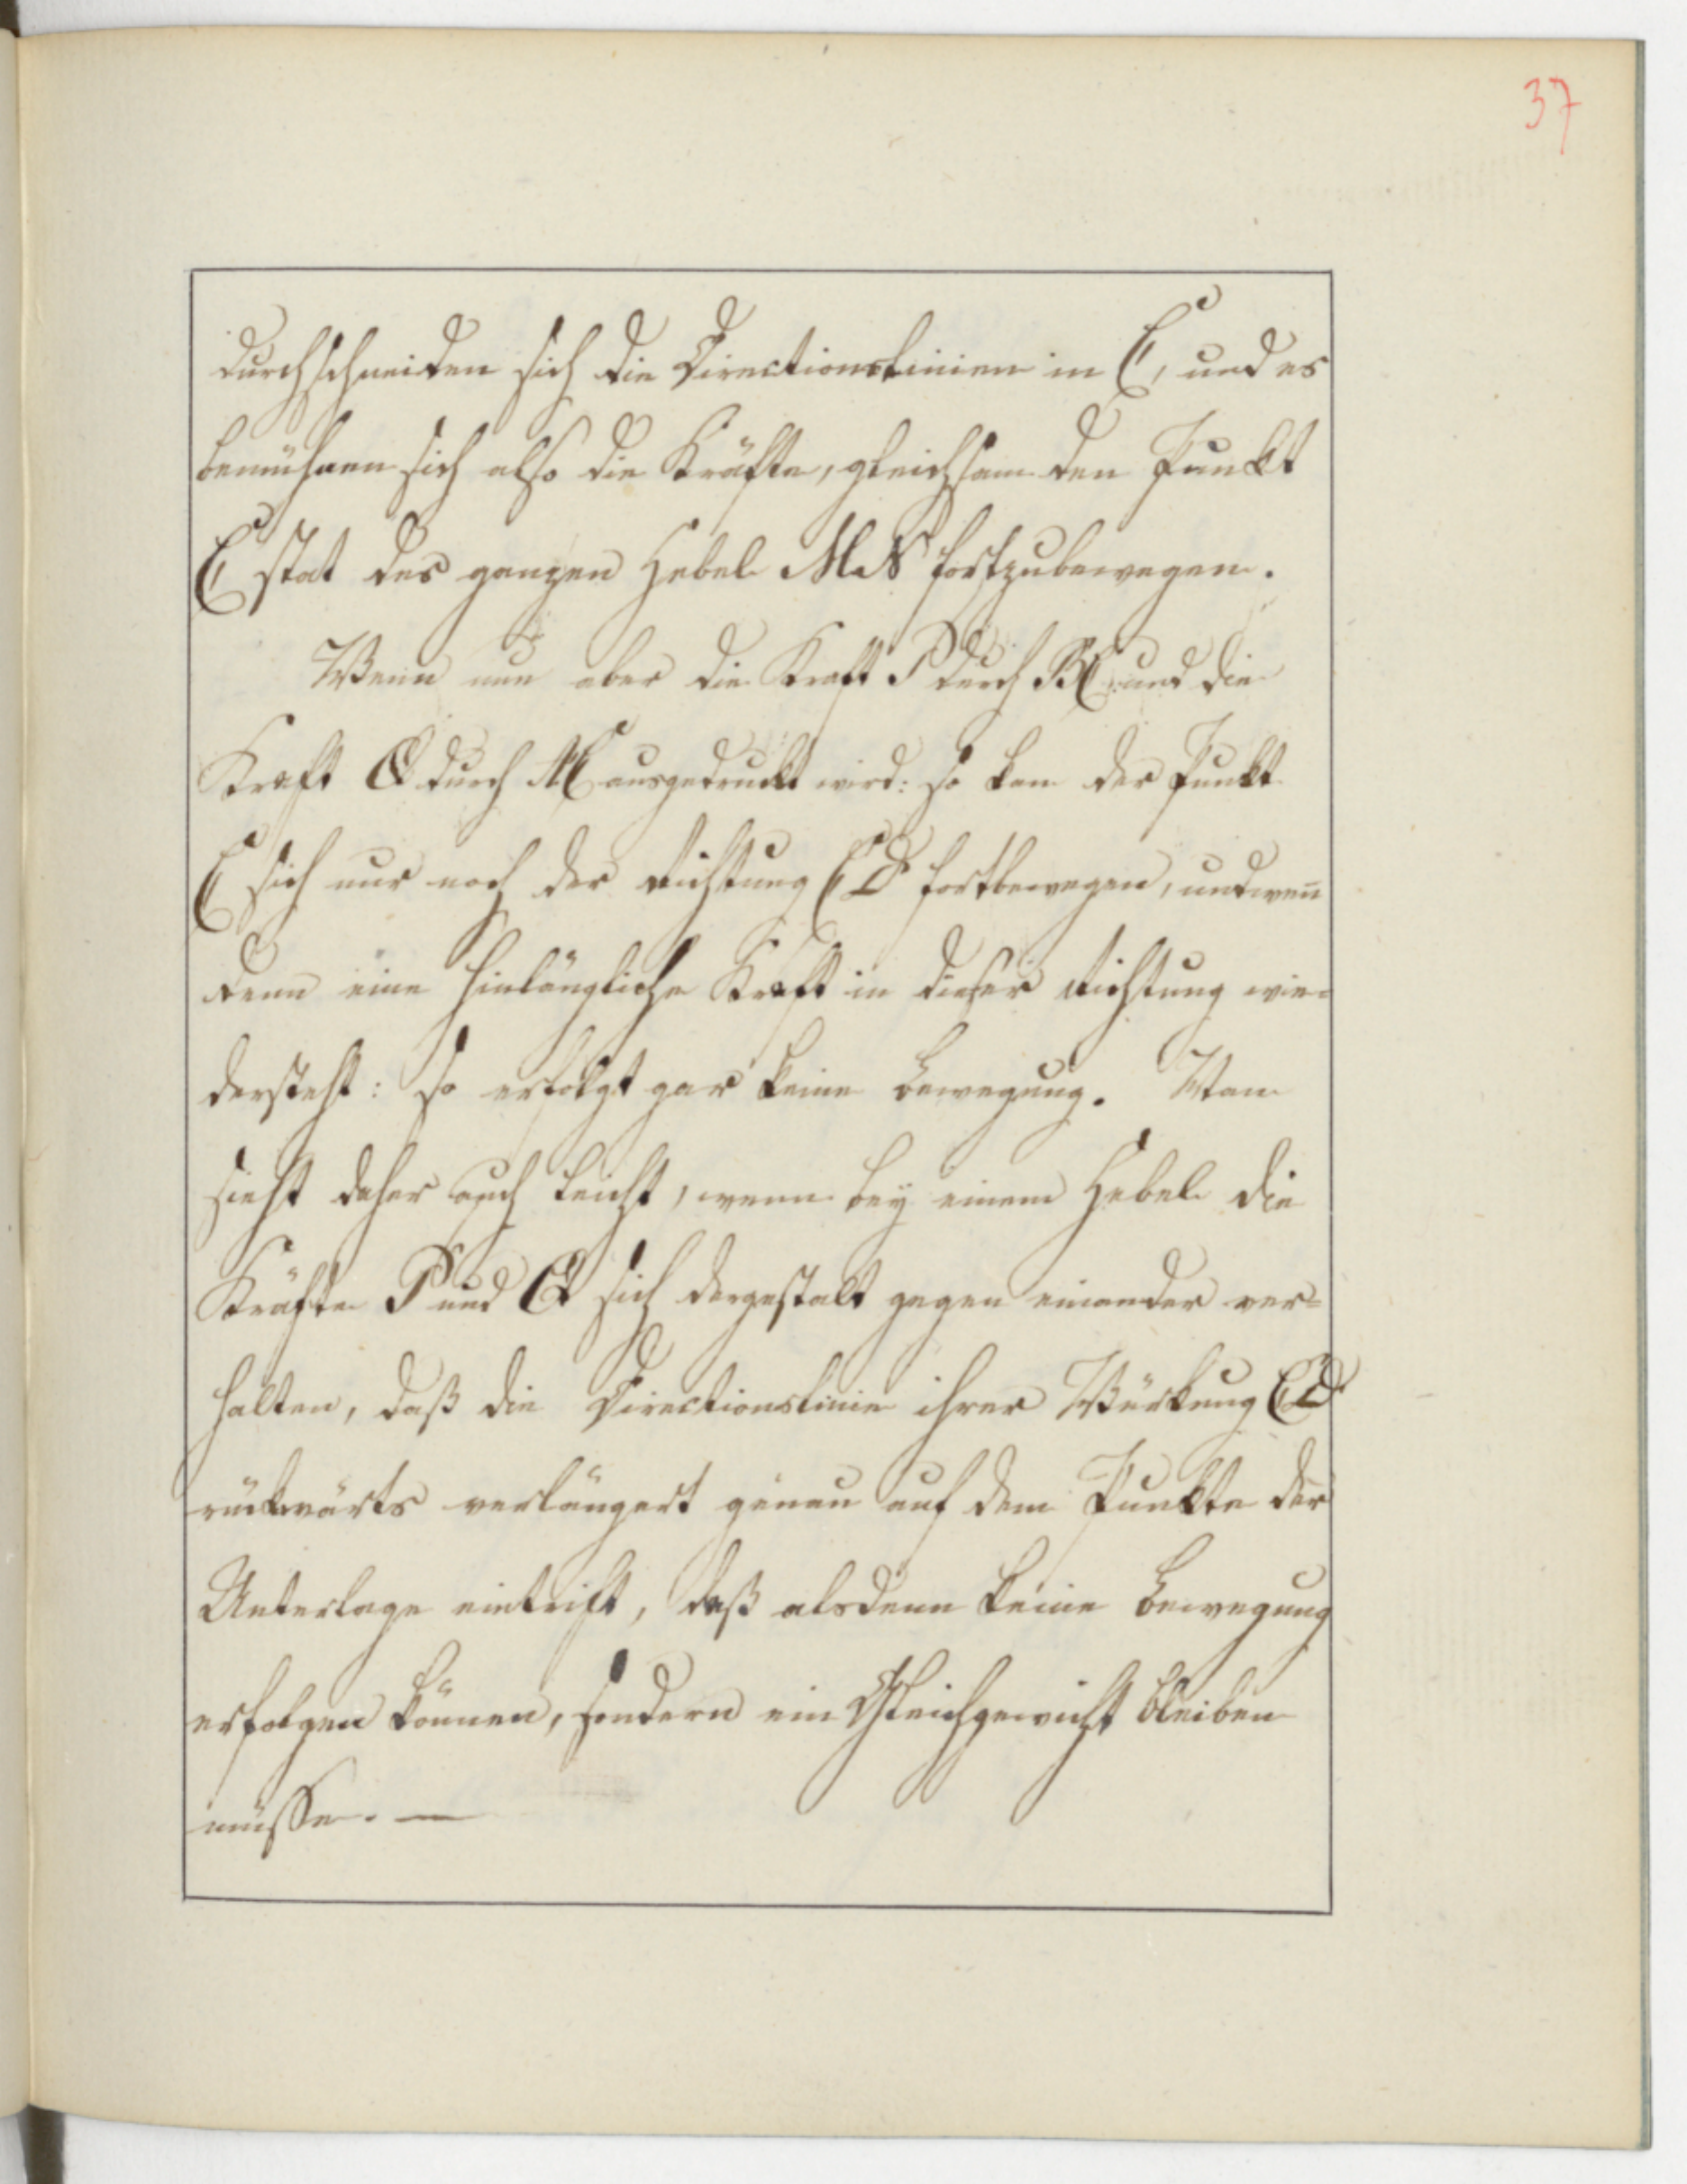 37
durchschneiden sich die Directionslinien in C, und es
bemühen sich also die Kräfte, gleichsam den Punkt
C statt des ganzen Hebel MN fortzubewegen.
Wenn nun aber die Kraft P durch BC und die
Kraft Q durch AC ausgedruckt wird: so kan der Punkt
C sich nur nach der Richtung CD fortbewegen, und wen̄
denn eine hinlängliche Kraft in dieser Richtung wie=
dersteht: so erfolgt gar keine Bewegung. Man
sieht daher auch leicht, wenn bey einem Hebel die
Kräfte P und Q sich dergestalt gegen einander ver=
halten, daß die Directionslinie ihrer Würkung CD
rückwärts verlängert genau auf dem Punkte der
Unterlage eintrift, daß alsdenn keine Bewegung
erfolgen können, sondern ein Gleichgewicht bleiben
müsse. —